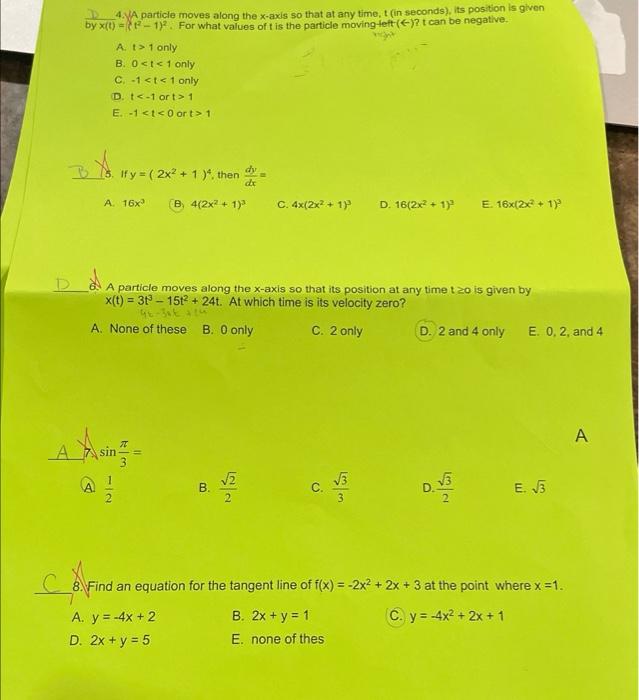 D 4. A particle moves along the x-axis so that at any time, t (in seconds), its position is given
by x(t) = (t² – 1)². For what values of t is the particle moving left (←)? t can be negative.
right
A. t > 1 only
B. 0 < t < 1 only
C. -1 < t < 1 only
D. t < -1 or t > 1
E. -1 < t < 0 or t > 1
B 5. If y = ( 2x² + 1 )⁴, then dy/dx =
A. 16x³ B. 4(2x² + 1)³ C. 4x(2x² + 1)³ D. 16(2x² + 1)³ E. 16x(2x² + 1)³
D 6. A particle moves along the x-axis so that its position at any time t ≥o is given by
x(t) = 3t³ – 15t² + 24t. At which time is its velocity zero?
A. None of these B. 0 only C. 2 only D. 2 and 4 only E. 0, 2, and 4
A
A 7. sin π/3 =
A. 1/2 B. √2/2 C. √3/3 D. √3/2 E. √3
C 8. Find an equation for the tangent line of f(x) = -2x² + 2x + 3 at the point where x =1.
A. y = -4x + 2 B. 2x + y = 1 C. y = -4x² + 2x + 1
D. 2x + y = 5 E. none of thes